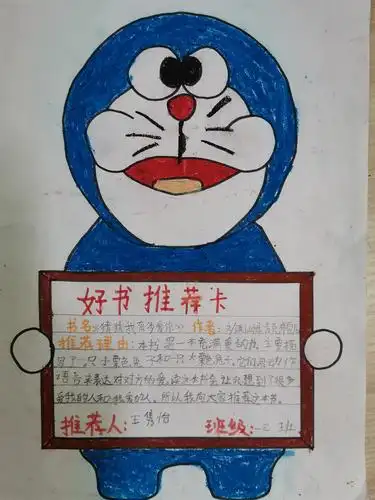 好书推荐卡
书名:《猜猜我有多爱你》 作者:
推荐理由:本书是一本充满爱的书,主要描
写了一只小栗色兔子和一只大栗色兔子,它们用动作
语言来表达对对方的爱,读这本书会让我想到了很多
爱我的人和我爱的人。所以我向大家推荐这本书。
推荐人:王隽怡 班级:一3班